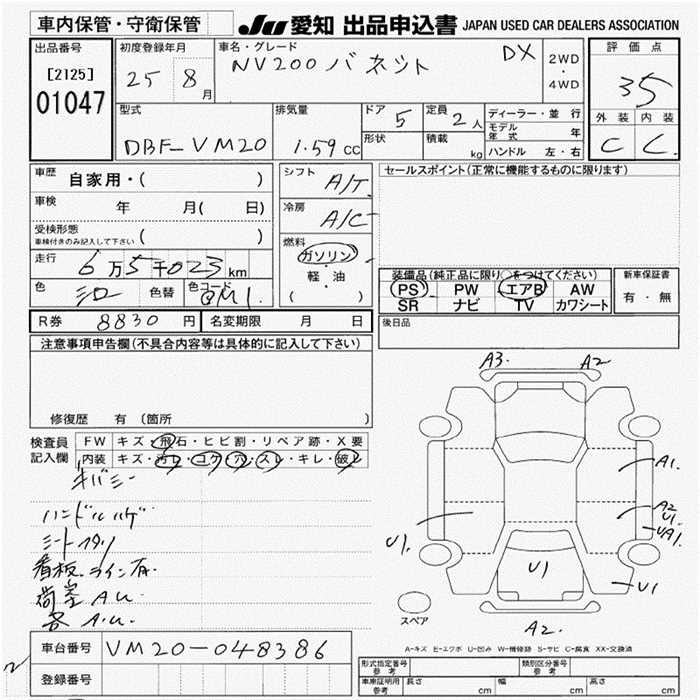 車内保管・守衛保管
JU 愛知 出品申込書 JAPAN USED CAR DEALERS ASSOCIATION
出品番号
[2125]
01047
初度登録年月
25 8月
車名・グレード
NV200 バネット DX
2WD
・
4WD
評価点
35
外装 内装
C C
型式
DBF-VM20
排気量
1.59 CC
ドア 5
形状
定員 2人
積載 kg
ディーラー・並行
モデル年式 年
ハンドル 左・右
車歴 自家用・( )
車検 年 月( 日)
受検形態
車検付きのみ記入して下さい ( )
走行 6万5千023km
色 シロ 色替 色コード @M1.
R券 8830円 名変期限 月 日
シフト A/T
冷房 A/C
燃料
ガソリン
軽・油
( )
セールスポイント(正常に機能するものに限ります)
装備品(純正品に限り○をつけてください)
PS PW エアB AW
SR ナビ TV カワシート
新車保証書
有・無
後日品
注意事項申告欄(不具合内容等は具体的に記入して下さい)
修復歴 有(箇所 )
検査員記入欄
FW キズ・飛石・ヒビ割・リペア跡・X要
内装 キズ・汚レ・コゲ・穴・スレ・キレ・破レ
キバミー
ハンドルハゲ
シートスタリ
看板.ライン有.
荷室 A.U.
各 A.U.
車台番号 VM20-048386
登録番号
A3. A2
A1.
A2
U1.
UA1.
U1.
U1
U1
A2.
スペア
A-キズ E-エクボ U-凹み W-補修跡 S-サビ C-腐食 XX-交換済
形式指定番号 参考
類別区分番号 参考
車庫証明用 参考 長さ cm 幅 cm 高さ cm